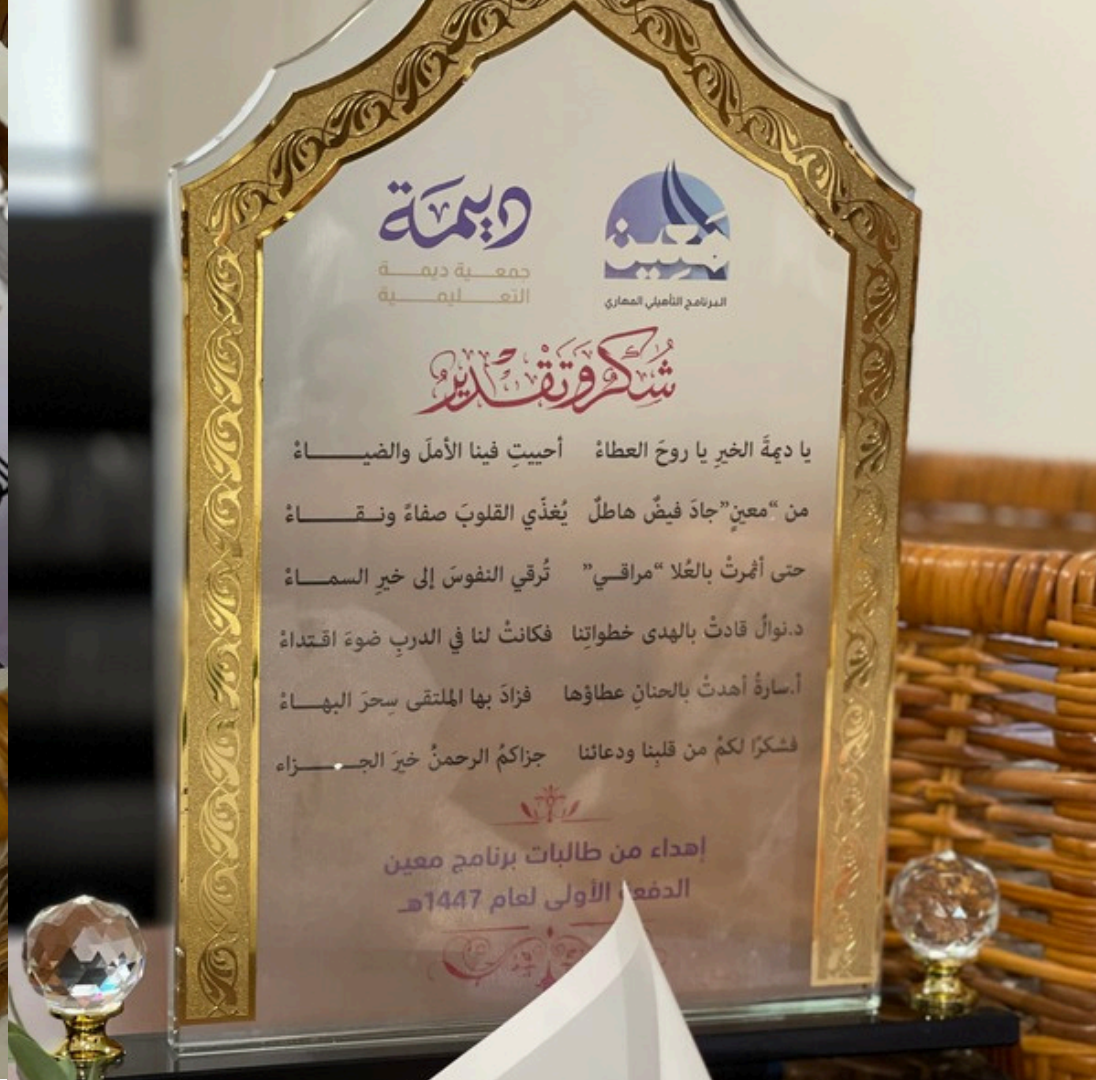 معين
البرنامج التأهيلي المهاري
ديمة
جمعية ديمة
التعليمية
شُكْر وَتَقْدير
يا ديمةَ الخيرِ يا روحَ العطاءْ أحييتِ فينا الأملَ والضياءْ
من “معينٍ” جادَ فيضٌ هاطلٌ يُغذّي القلوبَ صفاءً ونقاءْ
حتى أثمرتْ بالعُلا “مراقي” تُرقي النفوسَ إلى خيرِ السماءْ
د.نوالُ قادتْ بالهدى خطواتِنا فكانتْ لنا في الدربِ ضوءَ اقتداءْ
أ.سارةُ أهدتْ بالحنانِ عطاؤها فزادَ بها الملتقى سِحرَ البهاءْ
فشكرًا لكمْ من قلبِنا ودعائنا جزاكمُ الرحمنُ خيرَ الجزاء
إهداء من طالبات برنامج معين
الدفعة الأولى لعام 1447هـ